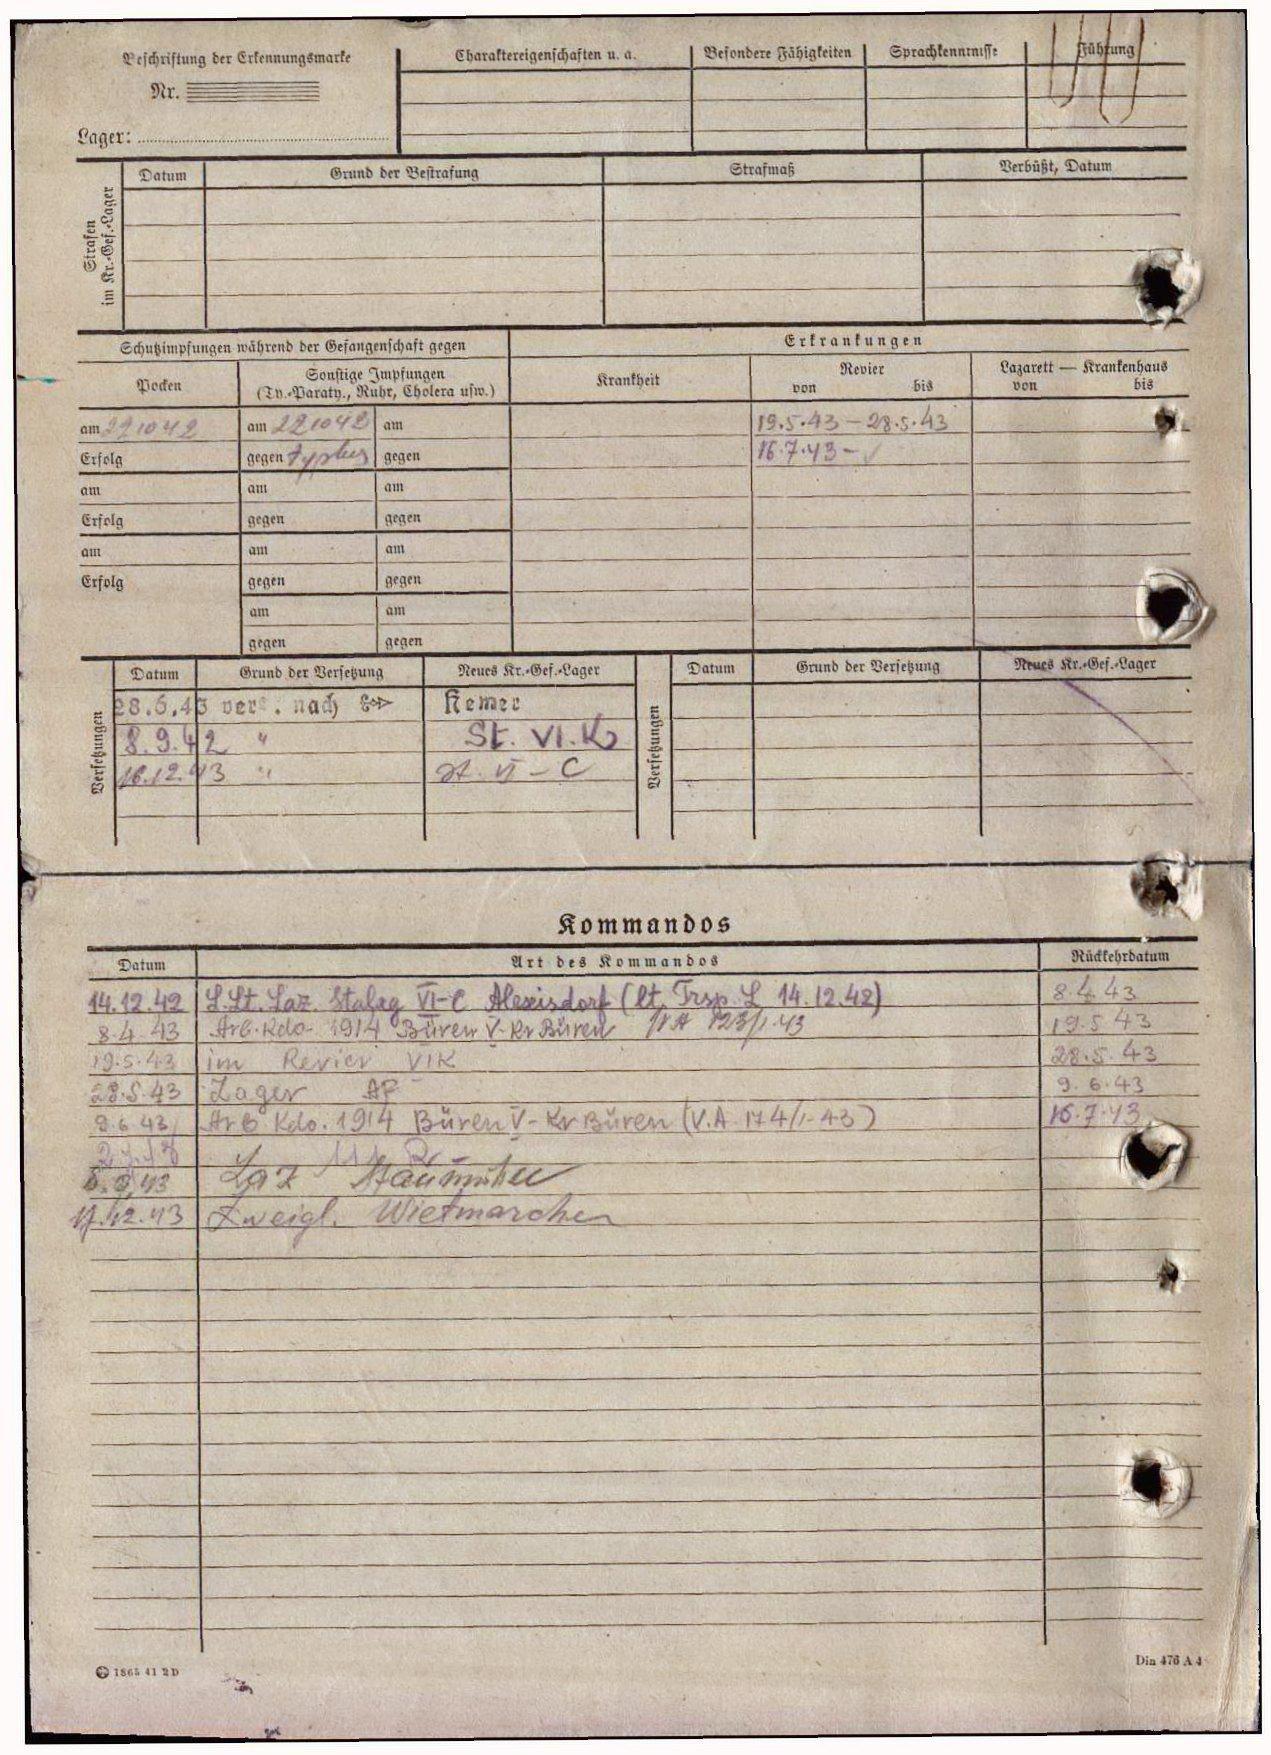 Beschriftung der Erkennungsmarke
Nr.
Lager:
Charaktereigenschaften u. a.
Besondere Fähigkeiten
Sprachkenntnisse
Führung
Strafen im Kr.-Gef.-Lager
Datum
Grund der Bestrafung
Strafmaß
Verbüßt, Datum
Schutzimpfungen während der Gefangenschaft gegen
Erkrankungen
Pocken
Sonstige Impfungen
(Ty.-Paraty., Ruhr, Cholera usw.)
Krankheit
Revier
von bis
Lazarett — Krankenhaus
von bis
am 221042 am 221042 am 19.5.43 – 28.5.43
Erfolg gegen typhus gegen 16.7.43 –
am am am
Erfolg gegen gegen
am am am
Erfolg gegen gegen
am am
gegen gegen
Versetzungen
Datum Grund der Versetzung Neues Kr.-Gef.-Lager
28.6.43 vers. nach Hemer
8.9.42 " St. VI. K
16.12.43 " St. VI – C
Versetzungen
Datum Grund der Versetzung Neues Kr.-Gef.-Lager
Kommandos
Datum Art des Kommandos Rückkehrdatum
14.12.42 Laz. Stalag VI-C Alexisdorf (lt. Trsp. L 14.12.42) 8.4.43
8.4.43 Arb. Kdo. 1914 Büren V. Kr Büren 19.5.43
19.5.43 im Revier VIK 28.5.43
28.5.43 Lager 9.6.43
9.6.43 Arb Kdo. 1914 Büren V - Kr Büren (V.A 174/1-43) 16.7.43
Laz Staumühle
17.12.43 Zweigl. Wietmarchen
1865 41 2 D
Din 476 A 4